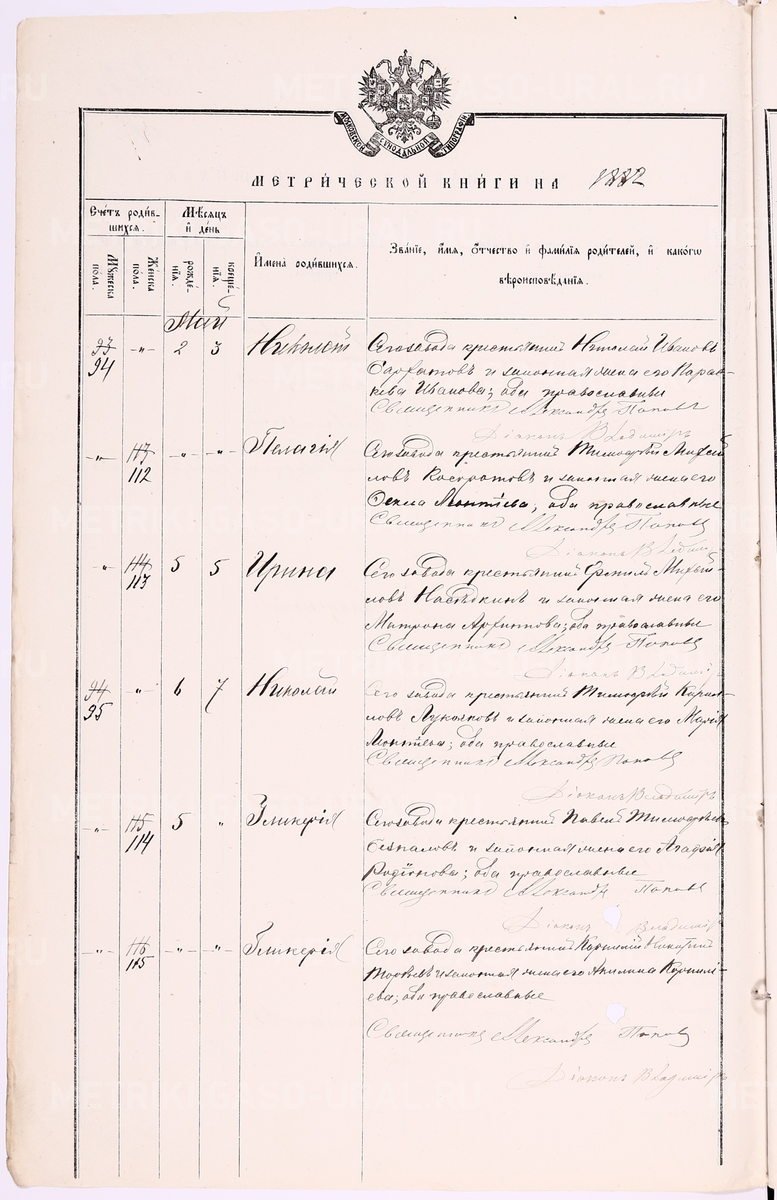 МОСКОВСКОЙ СѴНОДАЛЬНОЙ ТИПОГРАФІИ
МЕТРИ́ЧЕСКОЙ КНИ́ГИ НА 1882
Счетъ роди́в-
шихся.
Мѣсяцъ
и день
Мꙋжеска пола.
Женска пола.
рожде́-
нїя.
креще́-
нїя.
И́мена роди́вшихся.
Зва́нїе, и́мя, ѻ́тчество и фами́лїя роди́телей, и како́гѡ
вѣроисповѣ́данїя.
Май
93
94 -„- 2 3 Николай Сего завода крестьянинъ Николай Ивановъ
и законная жена его
Иванова; оба православные
Священникъ Александръ Поповъ
Діаконъ Владиміръ
-„- 113
112 -„- -„- Пелагія Сего завода крестьянинъ Тимофей Михай-
ловъ и законная жена его
Леонтіева; оба православные
Священникъ Александръ Поповъ
Діаконъ Владиміръ
„ 114
113 5 5 Ирина Сего завода крестьянинъ Михай-
ловъ Насѣдкинъ и законная жена его
Матрона оба православные
Священникъ Александръ Поповъ
Діаконъ Владиміръ
94
95 „ 6 7 Николай Сего завода крестьянинъ Тимофей Кирил-
ловъ Лукояновъ и законная жена его Марія
Леонтіева; оба православные
Священникъ Александръ Поповъ
Діаконъ Владиміръ
-„- 115
114 5 „ Гликерія Сего завода крестьянинъ Павелъ Тимофеевъ
Безпаловъ и законная жена его Агафія
Родіонова; оба православные
Священникъ Александръ Поповъ
Діаконъ Владиміръ
-„- 116
115 -„- -„- Гликерія Сего завода крестьянинъ
и законная жена его Акилина Корнилі-
ева; оба православные
Священникъ Александръ Поповъ
Діаконъ Владиміръ